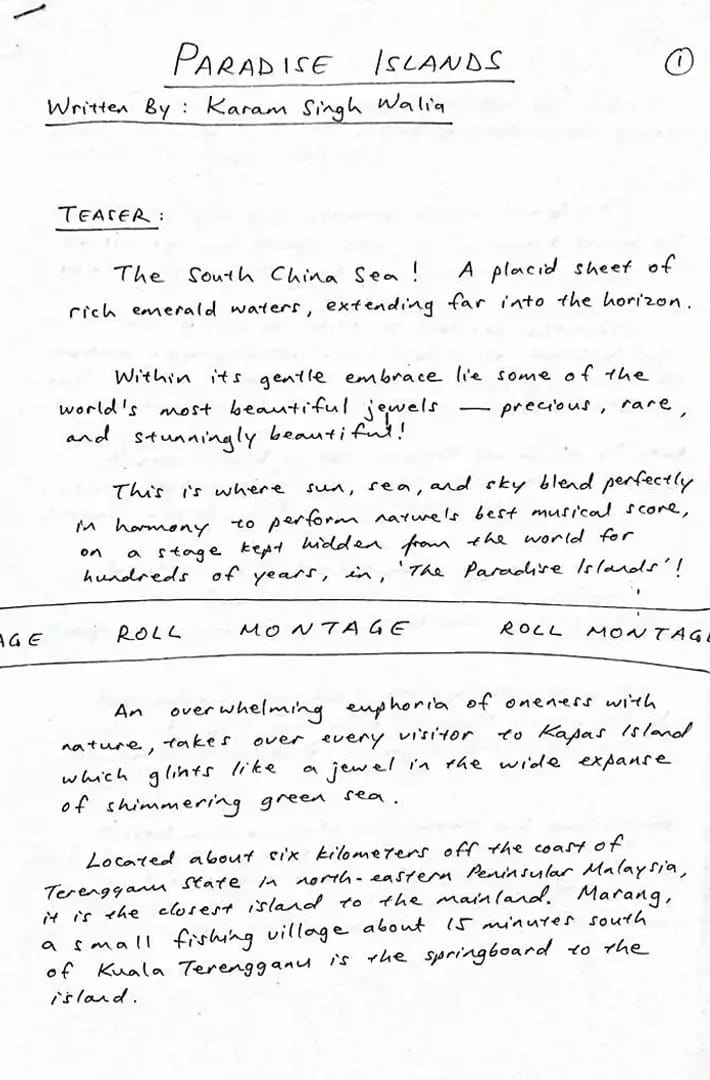 PARADISE ISLANDS
1
Written By : Karam Singh Walia
TEASER :
The South China Sea ! A placid sheet of
rich emerald waters, extending far into the horizon.
Within its gentle embrace lie some of the
world's most beautiful jewels — precious, rare,
and stunningly beautiful!
This is where sun, sea, and sky blend perfectly
in harmony to perform nature's best musical score,
on a stage kept hidden from the world for
hundreds of years, in, 'The Paradise Islands'!
AGE ROLL MONTAGE ROLL MONTAGE
An overwhelming euphoria of oneness with
nature, takes over every visitor to Kapas Island
which glints like a jewel in the wide expanse
of shimmering green sea.
Located about six kilometers off the coast of
Terengganu State in north-eastern Peninsular Malaysia,
it is the closest island to the mainland. Marang,
a small fishing village about 15 minutes south
of Kuala Terengganu is the springboard to the
island.